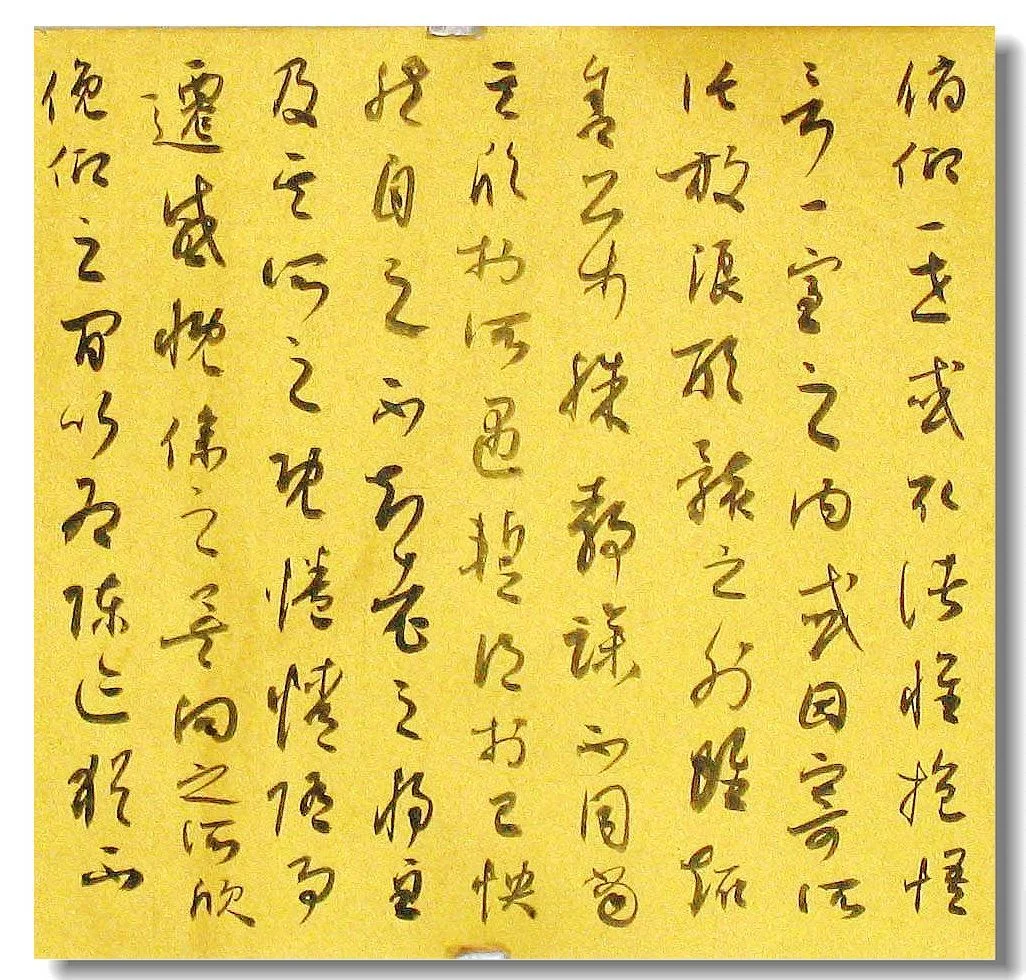 俯仰一世或取諸懷抱悟
言一室之內或因寄所
託放浪形骸之外雖趣
舍萬殊靜躁不同當
其欣於所遇暫得於己怏
然自足不知老之將至
及其所之既惓情隨事
遷感慨係之矣向之所欣
俛仰之間以為陳迹猶不